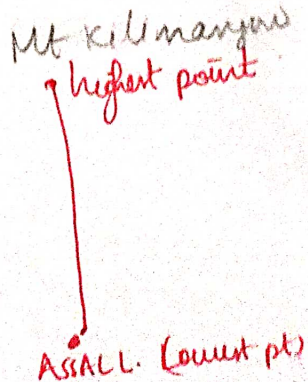 Mt Kilimanjaro
highest point
ASSALL. (lowest pt)